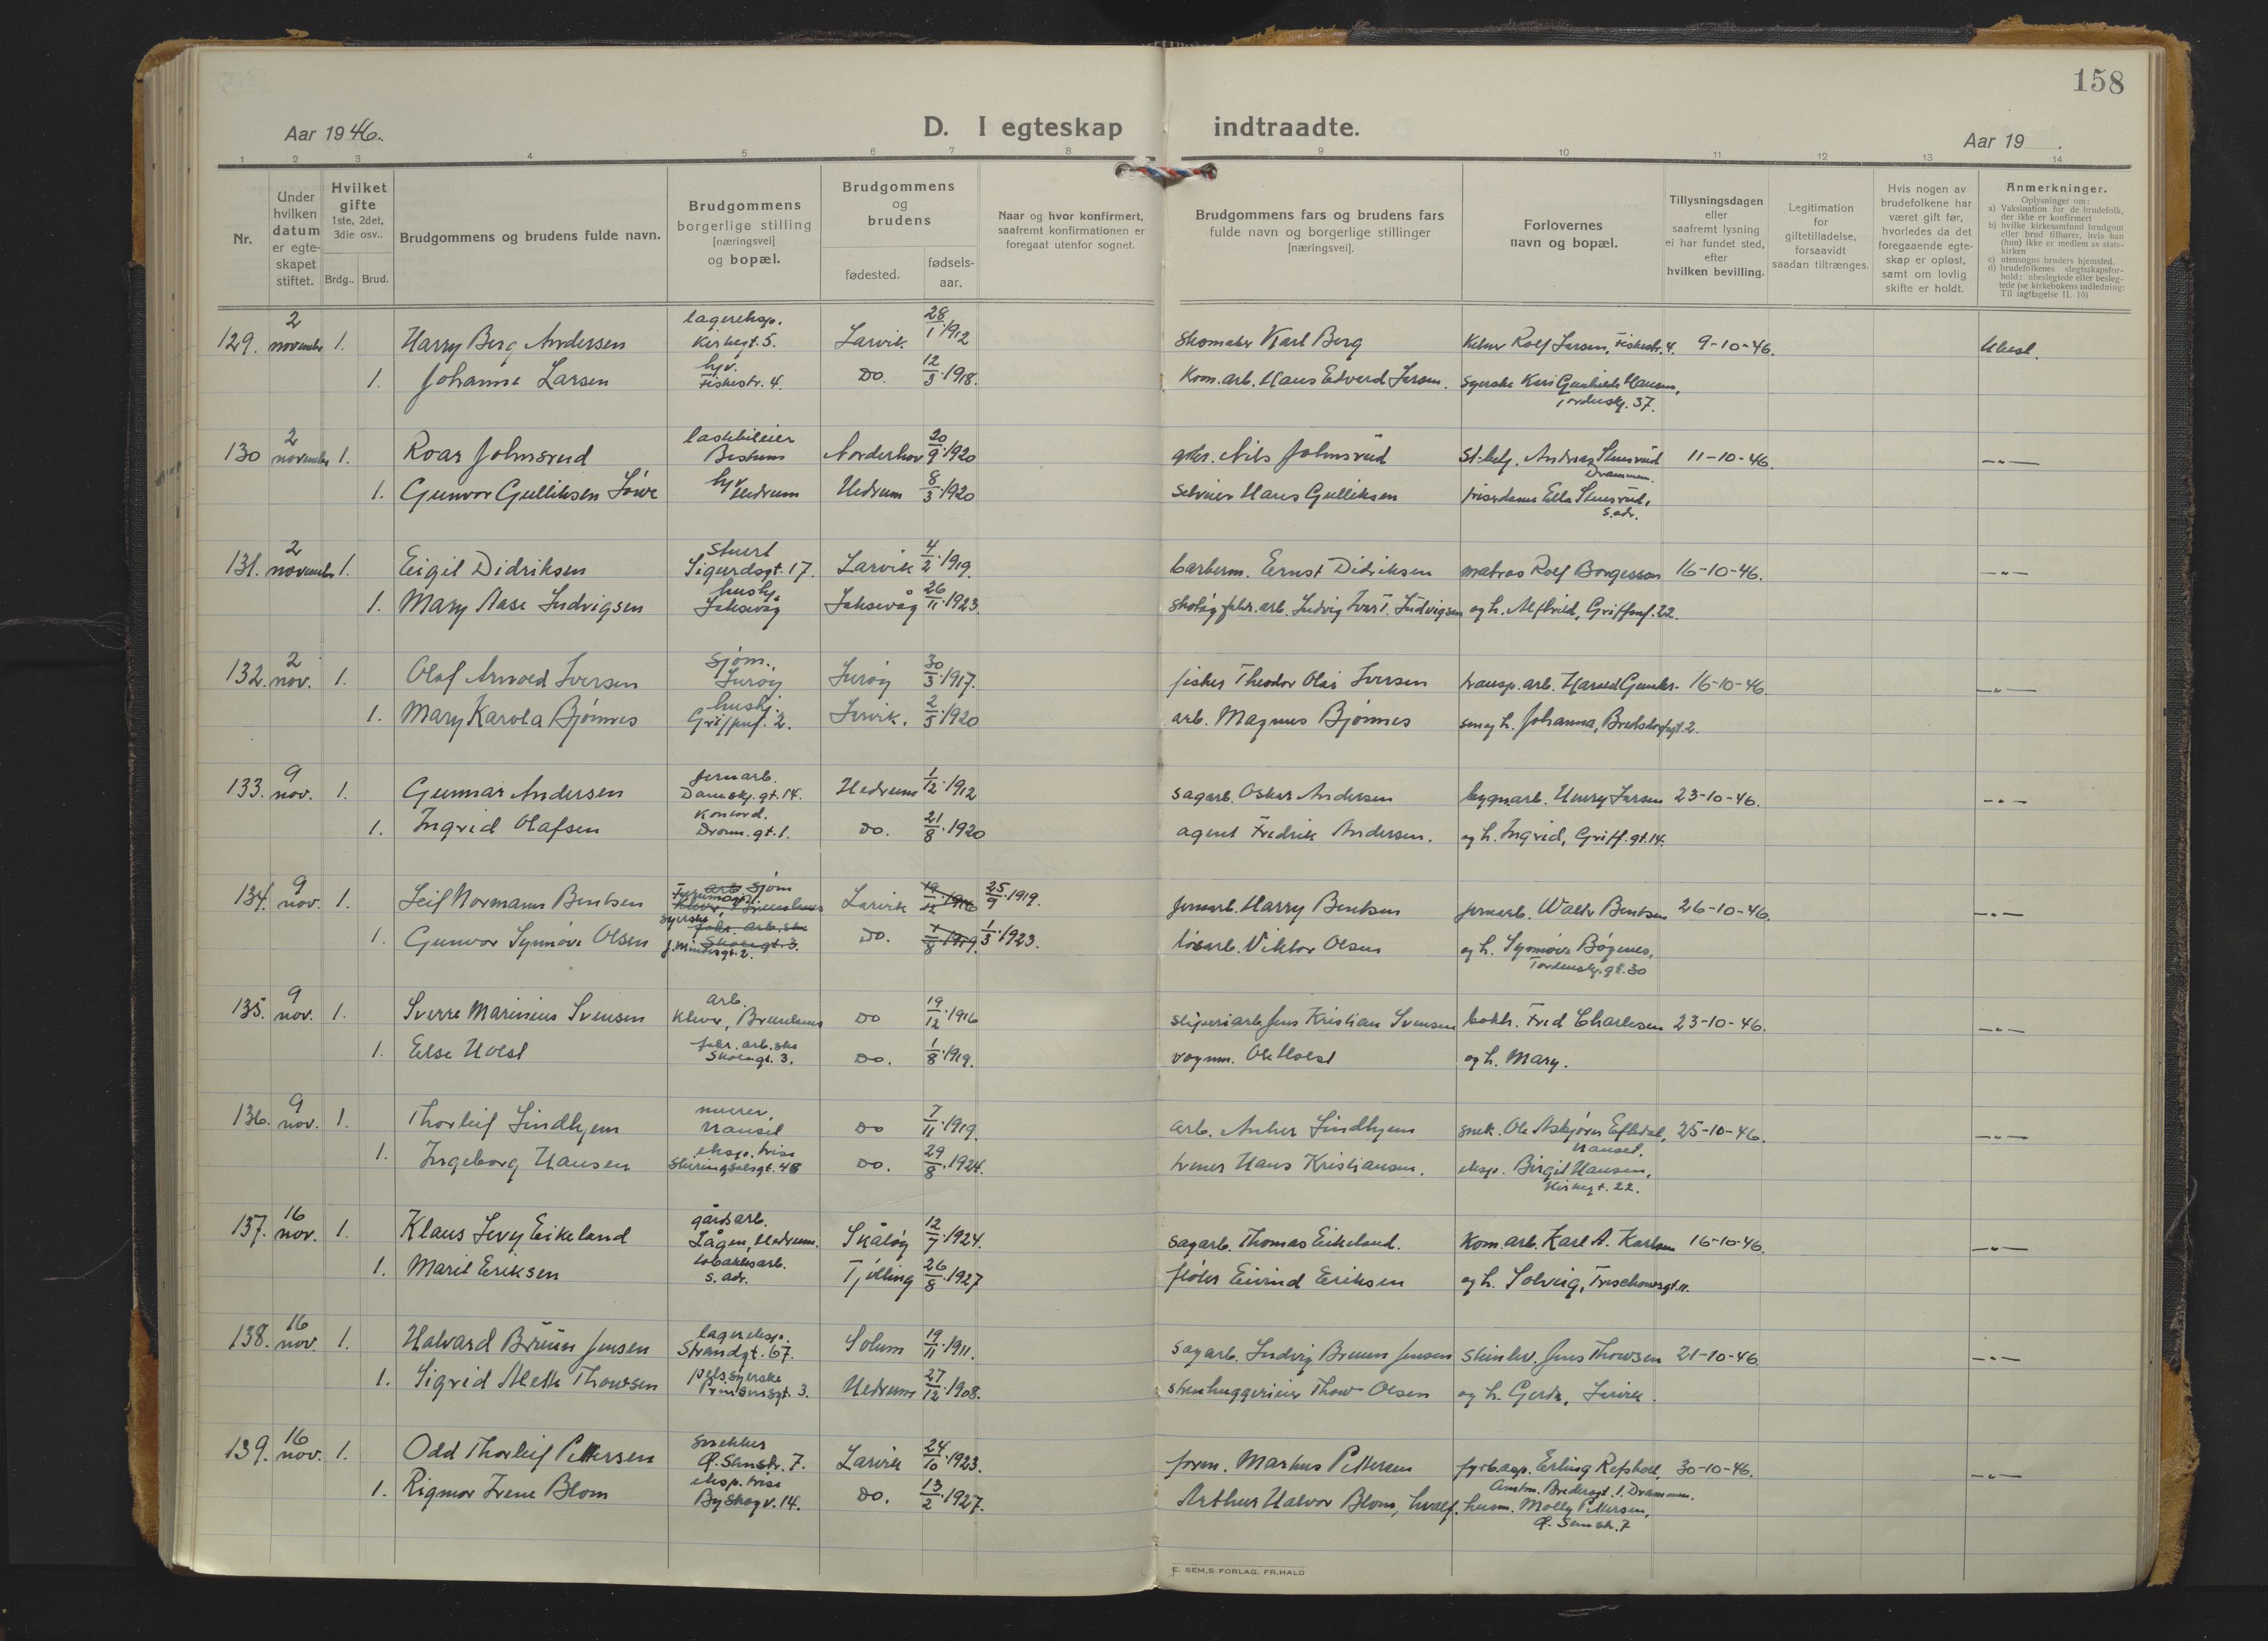 158
Aar 1946.
D. I egteskap indtraadte.
Aar 19 .
1 2 3 4 5 6 7 8 9 10 11 12 13 14
Nr.
Under
hvilken
datum
er egte-
skapet
stiftet.
Hvilket
gifte
1ste, 2det,
3die osv..
Brdg.. Brud.
Brudgommens og brudens fulde navn.
Brudgommens
borgerlige stilling
[næringsvei]
og bopæl.
Brudgommens
og
brudens
fødested.
fødsels-
aar.
Naar og hvor konfirmert,
saafremt konfirmationen er
foregaat utenfor sognet.
Brudgommens fars og brudens fars
fulde navn og borgerlige stillinger
[næringsvei].
Forlovernes
navn og bopæl.
Tillysningsdagen
eller
saafremt lysning
ei har fundet sted,
efter
hvilken bevilling.
Legitimation
for
giftetilladelse,
forsaavidt
saadan tiltrænges.
Hvis nogen av
brudefolkene har
været gift før,
hvorledes da det
foregaaende egte-
skap er opløst,
samt om lovlig
skifte er holdt.
Anmerkninger.
Oplysninger om:
a) Vaksination for de brudefolk,
der ikke er konfirmert
b) hvilke kirkesamfund brudgom
eller brud tilhører, hvis han
(hun) ikke er medlem av stats-
kirken
c) utensogns bruders hjemsted.
d) brudefolkenes slegtsskapsfor-
hold: ubeslegtede eller besleg-
tede (se kirkebokens indledning:
Til iagttagelse II. 10)
129. 2 november 1. Harry Berg Andersen lagereksp. Kirkegt. 5. Larvik 28/1 1912 Skomaker Karl Berg Kelner Rolf Larsen, Fiskestr. 4. 9-10-46. Ubesl.
1. Johanna Larsen hjv. Fiskestr. 4. Do. 12/3 1918. Kom.arb. Hans Edvard Larsen. Syerske Kari Gunhilde Hansen, Tordenskj. 37.
130 2 november 1. Roar Johnsrud lastebileier Norderhov 20/9 1920 Nils Johnsrud Andreas 11-10-46. —"—
Drammen.
1. Gunvor Gulliksen hjv. Hedrum Hedrum 8/3 1920 Selveier Hans Gulliksen frisørdame Ella
s. adr.
131. 2 november 1. Eigil Didriksen stuert Sigurdsgt. 17. Larvik 4/2 1919. barberm. Ernst Didriksen matros Rolf Borgesson 16-10-46. —"—
1. Mary Aase Ludvigsen hushj. Laksevåg Laksevåg 26/11 1923. skotøyfabr.arb. Ludvig Iver T. Ludvigsen og h. Alfhild, Griffenf. 22.
132. 2 nov. 1. Olaf Arnold Iversen sjøm., Lurøy Lurøy 30/3 1917. fisker Theodor Olai Iversen transp.arb. Harald Gunder- 16-10-46. —"—
1. Mary Karola Bjønnes hushj. Griffenf. 2. Larvik. 2/5 1920 arb. Magnus Bjønnes sen og h. Johanna, Bredsdorfsgt. 2.
133. 9 nov. 1. Gunnar Andersen jernarb. Hedrum 1/12 1912 sagarb. Oskar Andersen bygn.arb. Henry Larsen 23-10-46. —"—
1. Ingrid Olafsen Dronn. gt. 1. Do. 21/8 1920 agent Fredrik Andersen. og h. Ingrid, Griff. gt. 14.
134. 9 nov. 1. Leif Normann Bentsen sjøm Larvik 19/12 1916 25/9 1919. jernarb. Harry Bentsen jernarb. Walter Bentsen 26-10-46. —"—
1. Gunvor Synnøve Olsen syerske Do. 1/8 1919. 1/3 1923. løsarb. Viktor Olsen og h. Synnøve Bøgenes,
Tordenskj. gt. 30
135. 9 nov. 1. Sverre Marinius Svensen arb. Klever, Brunlanes Do 19/12 1916 sliperiarb. Jens Kristian Svensen bokh. Fred Charlesen 23-10-46. —"—
1. Else Holst fabr. arb.ske Skolegt. 3. Do. 1/8 1919. vognm. Ole Holst og h. Mary.
136. 9 nov. 1. Thorleif Lindhjem murer, Nanset Do 7/11 1919. arb. Anker Lindhjem snek. Ole Asbjørn Eftedal, 25-10-46. —"—
Nanset.
1. Ingeborg Hansen eksp. trise Skiringsalsgt. 48 Do. 29/8 1924. Hans Kristiansen. eksp. Birgit Hansen,
Kirkegt. 22.
137. 16 nov. 1. Klaus Levy Eikeland gårdsarb. Lågen, Hedrum. Skåtøy 12/7 1924. sagarb. Thomas Eikeland. Kom. arb. Karl A. Karlsen 16-10-46. —"—
1. Marit Eriksen tobakksarb. s. adr. Tjølling 26/8 1927 fløter Eivind Eriksen og h. Solveig, Treschowsgt. 11.
138. 16 nov. 1. Halvard Bruun Jensen lagereksp. Strandgt. 67. Solum 19/11 1911. sagarb. Ludvig Bruun Jensen Jens Thowsen 21-10-46. —"—
1. Sigrid Alette Thowsen pelssyerske Prinsensgt. 3. Hedrum 27/12 1908. stenhuggerieier Thow Olsen og h. Gerda, Larvik.
139. 16 nov. 1. Odd Thorleif Pettersen snekker Q. Semstr. 7. Larvik 24/10 1923. form. Markus Pettersen Erling Refsholt, 30-10-46. —"—
Drammen.
1. Rigmor Irene Blom eksp. trise Byskogv. 14. Do. 13/2 1927. Arthur Halvor Blom, hvalf. husm. Molly Pettersen,
Q. Semstr. 7
E. SEM,S FORLAG, FR.HALD